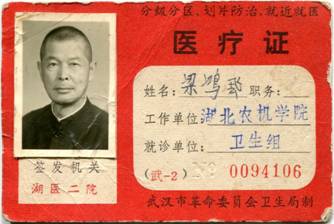 分级分区、划片防治、就近就医
医疗证
姓名：梁鸿 职务：
工作单位 湖北农机学院
就诊单位： 卫生组
签发机关
湖医二院
(武-2) №0094106
武汉市革命委员会卫生局制